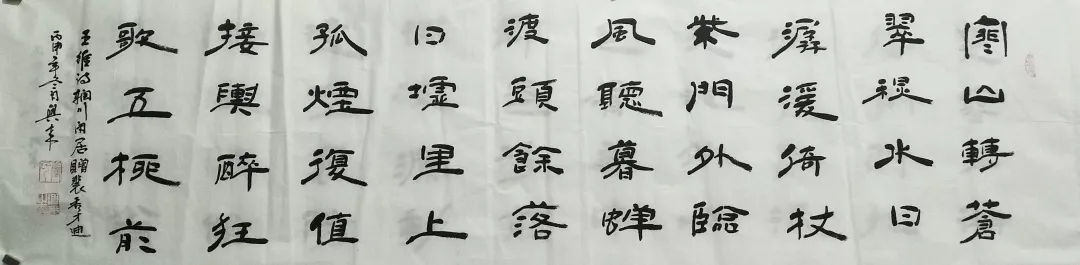 寒山轉蒼
翠秋水日
潺湲倚杖
柴門外臨
風聽暮蝉
渡頭餘落
日墟里上
孤煙復值
接輿醉狂
歌五柳前
王維詩輞川閑居贈裴秀才迪
丙申年冬月